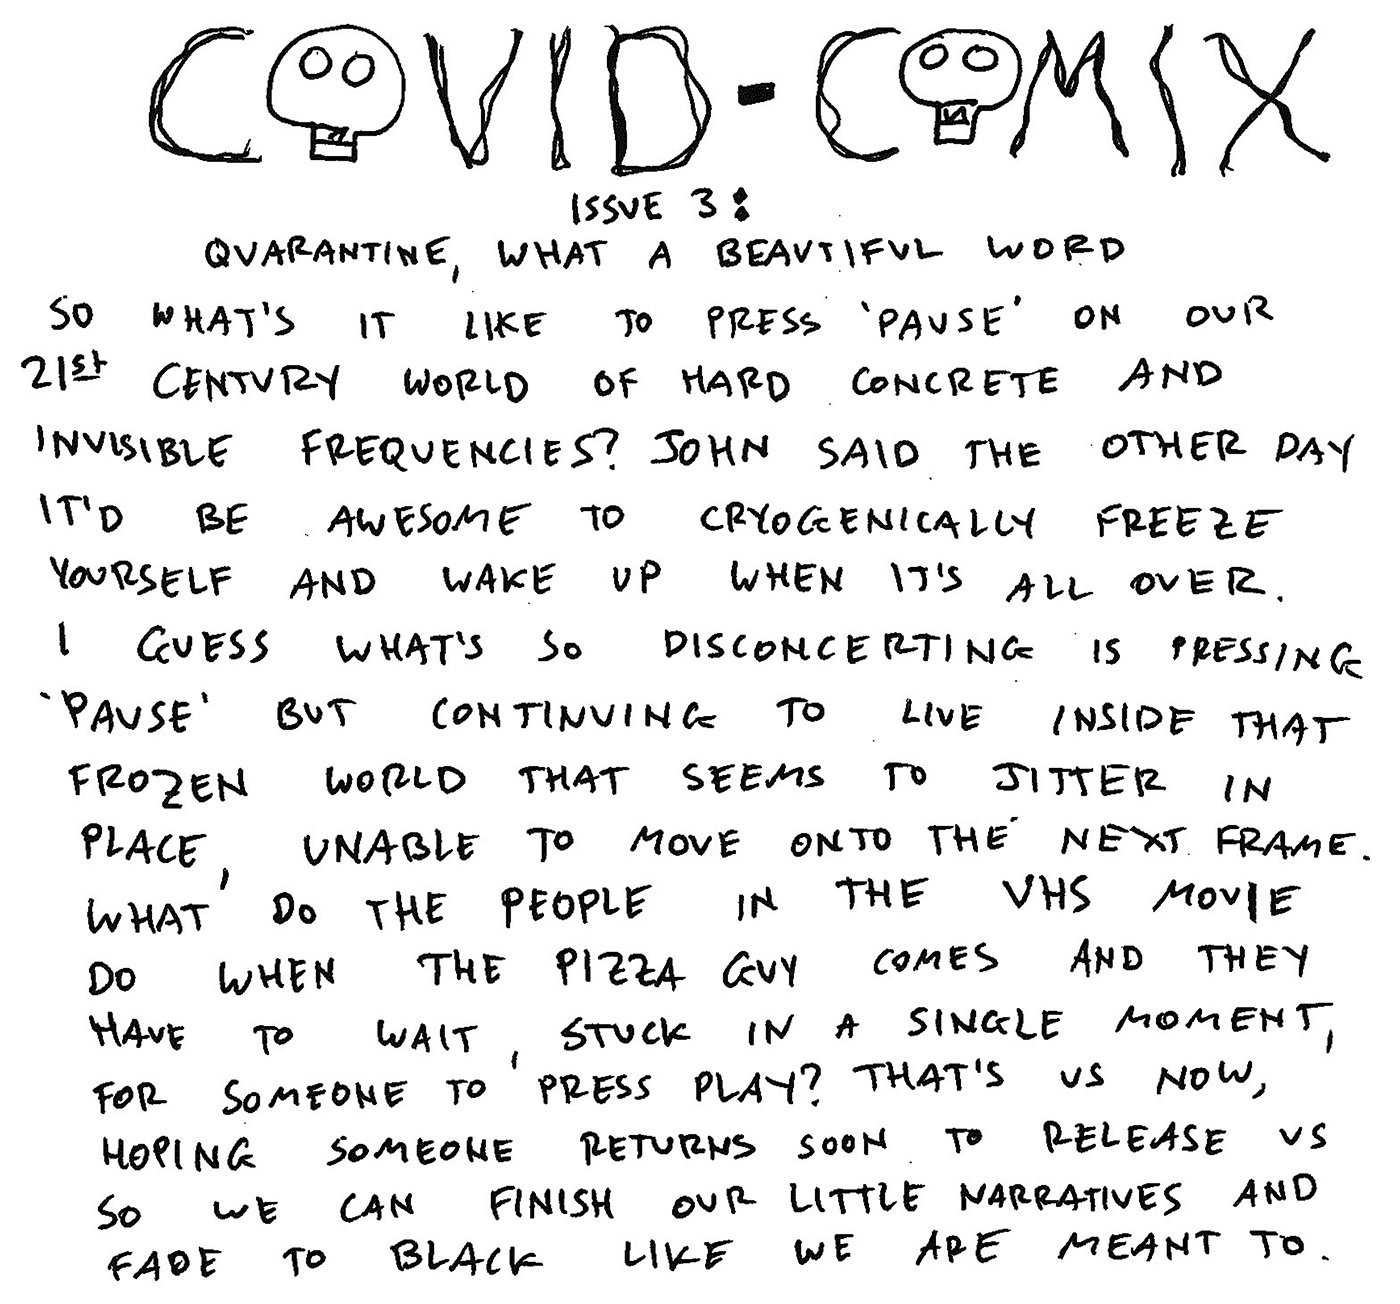 COVID-COMIX
ISSUE 3:
QUARANTINE, WHAT A BEAUTIFUL WORD
SO WHAT'S IT LIKE TO PRESS 'PAUSE' ON OUR
21st CENTURY WORLD OF HARD CONCRETE AND
INVISIBLE FREQUENCIES? JOHN SAID THE OTHER DAY
IT'D BE AWESOME TO CRYOGENICALLY FREEZE
YOURSELF AND WAKE UP WHEN IT'S ALL OVER.
I GUESS WHAT'S SO DISCONCERTING IS PRESSING
'PAUSE' BUT CONTINUING TO LIVE INSIDE THAT
FROZEN WORLD THAT SEEMS TO JITTER IN
PLACE, UNABLE TO MOVE ONTO THE NEXT FRAME.
WHAT DO THE PEOPLE IN THE VHS MOVIE
DO WHEN THE PIZZA GUY COMES AND THEY
HAVE TO WAIT, STUCK IN A SINGLE MOMENT,
FOR SOMEONE TO PRESS PLAY? THAT'S US NOW,
HOPING SOMEONE RETURNS SOON TO RELEASE US
SO WE CAN FINISH OUR LITTLE NARRATIVES AND
FADE TO BLACK LIKE WE ARE MEANT TO.